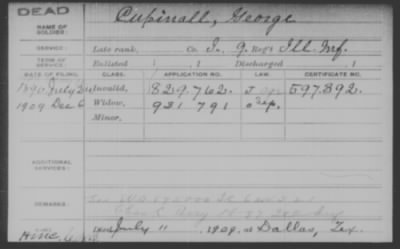 DEAD
NAME OF SOLDIER: Cupinall, George
SERVICE: Late rank, Co. I, 9 Reg't Ill. Inf.
TERM OF SERVICE: Enlisted , 1 Discharged , 1
DATE OF FILING. CLASS. APPLICATION NO. LAW. CERTIFICATE NO.
1890 July Invalid, 829.762 597.892
1909 Dec 6 Widow, 931 791
Minor,
ADDITIONAL SERVICES:
REMARKS:
Died July 11 1909, at Dallas, Tex.